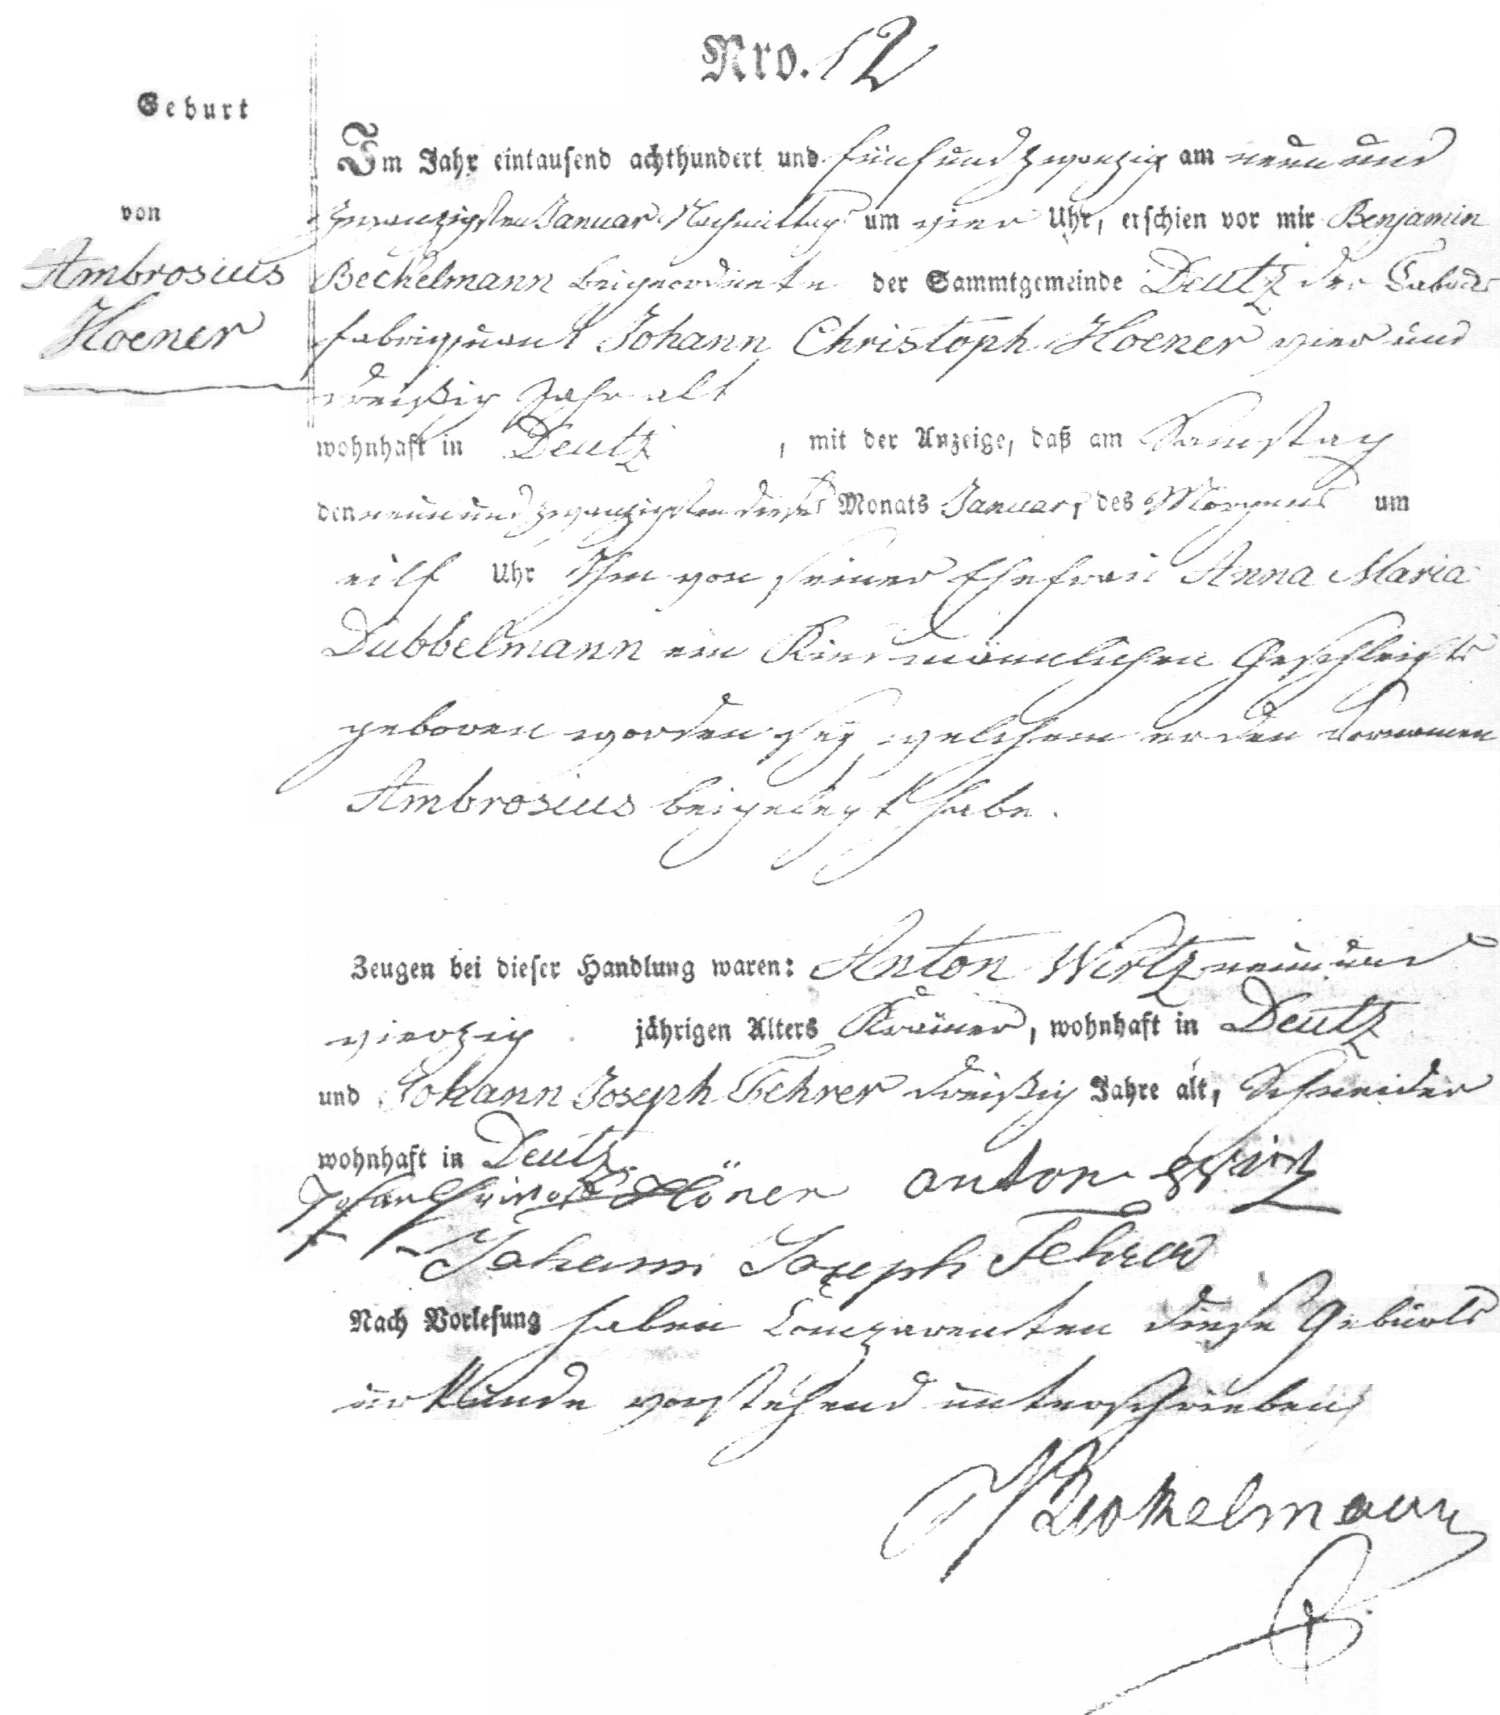 Nro. 12
Geburt
von
Ambrosius
Hoener
Im Jahr eintausend achthundert und fünf und zwanzig am neun und
zwanzigsten Januar Nachmittags um vier Uhr, erschien vor mir Benjamin
Beckelmann beigeordnete der Sammtgemeinde Deutz der Taback
fabriquant Johann Christoph Hoener vier und
dreißig Jahr alt
wohnhaft in Deutz, mit der Anzeige, daß am Samstag
den neun und zwanzigsten dieses Monats Januar, des Morgens um
eilf Uhr Ihm von seiner Ehefrau Anna Maria
Dubbelmann ein Kind männlichen Geschlechts
geboren worden sey welchem er den Vornamen
Ambrosius beigelegt habe.
Zeugen bei dieser Handlung waren: Anton Wirtz neun und
vierzig jährigen Alters Krämer, wohnhaft in Deutz
und Johann Joseph Fehrer dreißig Jahre alt, Schneider
wohnhaft in Deutz.
Johan Christoph Höner anton Wirtz
Johann Joseph Fehrer
Nach Vorlesung haben Comparenten diese Geburts
urkunde vorstehend unterschrieben
Beckelmann